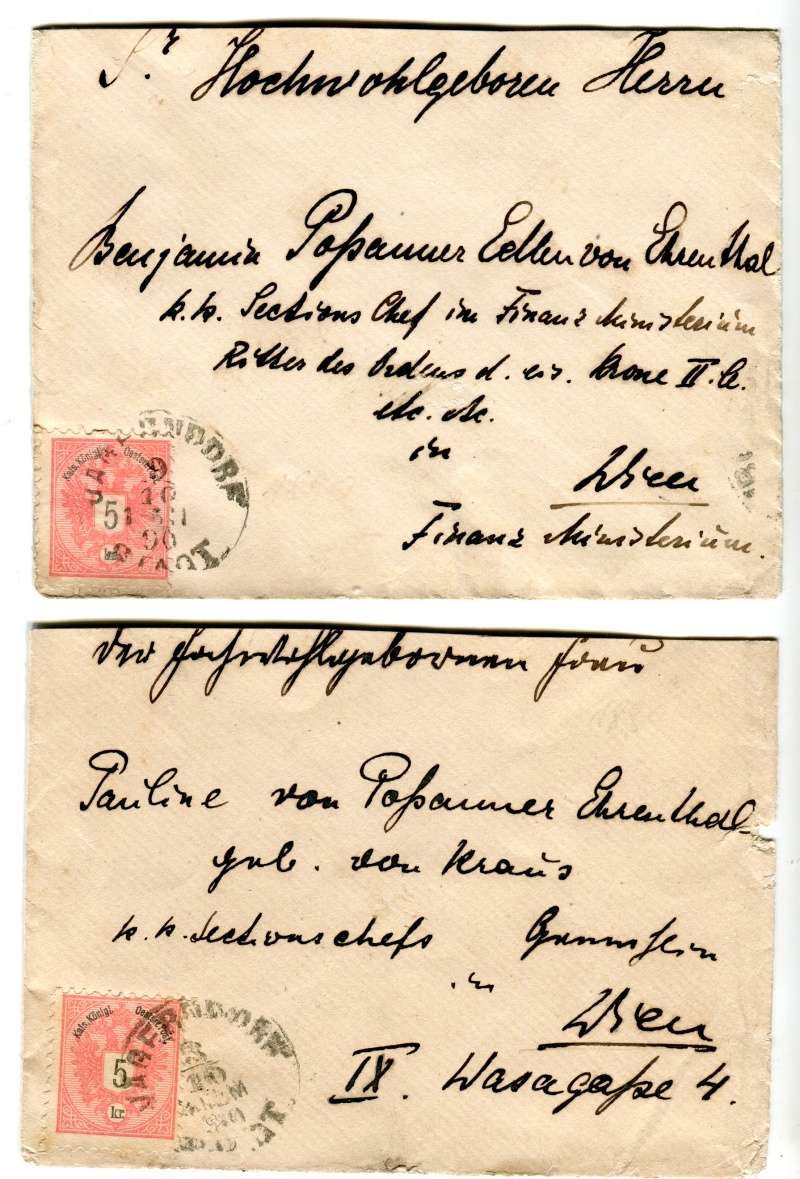 Sr Hochwohlgeboren Herrn
Benjamin Poßanner Edlen von Ehrenthal
k. k. Sections Chef im Finanz Ministerium
Ritter des Ordens d. eis. Krone II. Cl.
etc. etc.
in
Wien
Finanz Ministerium.
Kais. Königl. Oesterr.
5
kr.
der Hochwohlgebornen Frau
Pauline von Poßanner Ehrenthal
geb. von Kraus
k. k. Sectionschefs Gemahlin
in
Wien
IX. Wasagaße 4.
Kais. Königl. Oesterr.
5
kr.